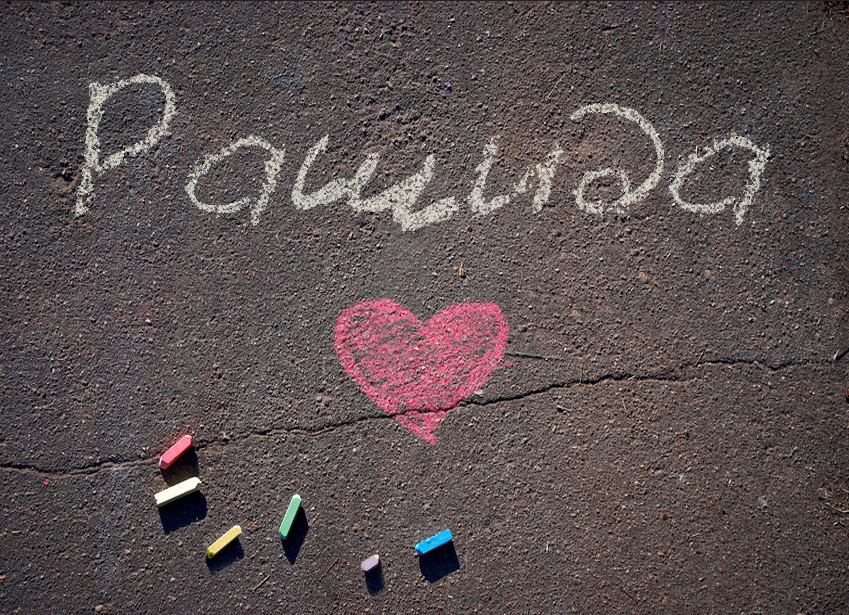 Рашида